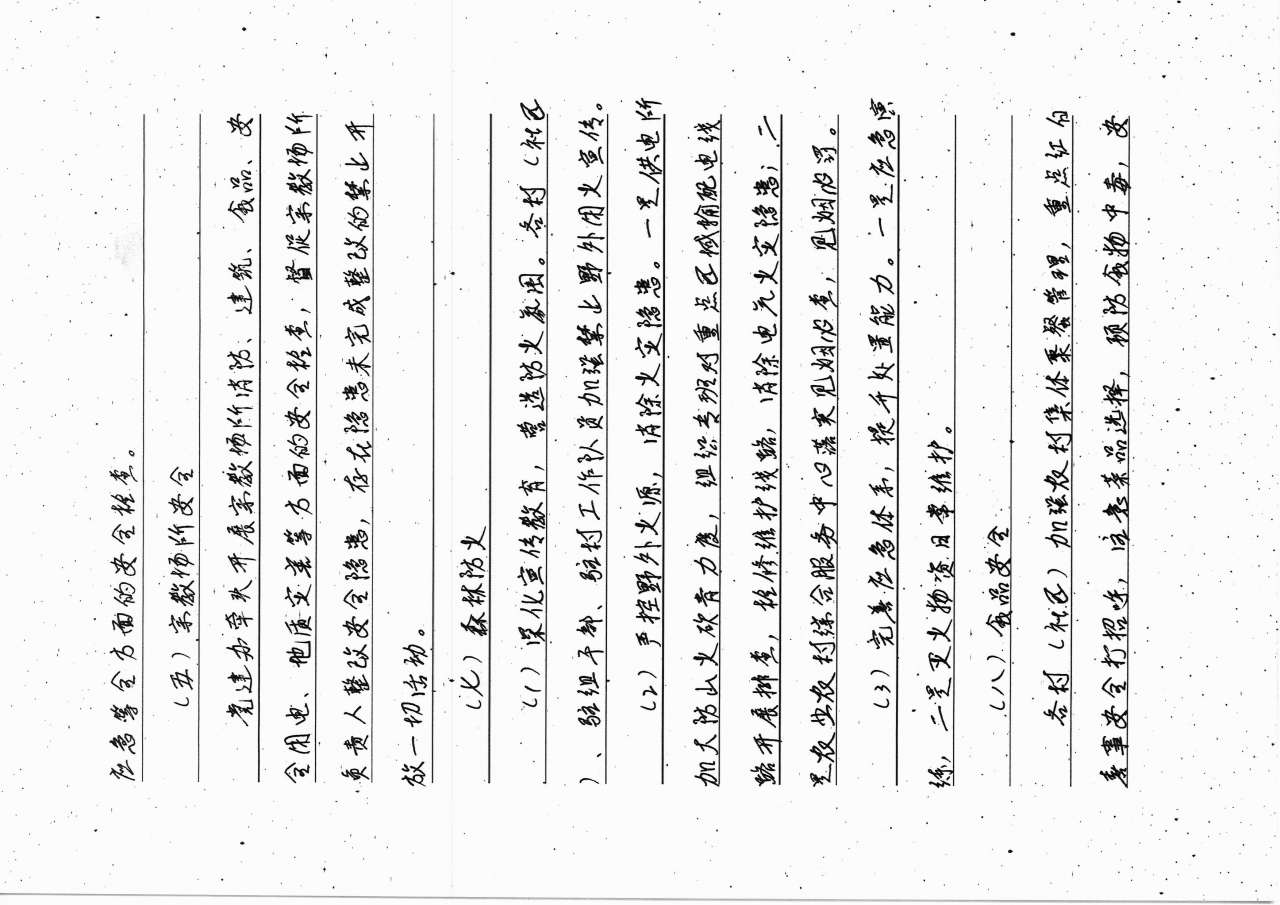 应急等全方面的安全检查。
（五）宗教场所安全
党建办牵头开展宗教场所消防、建筑、食品、安
全用电、地质灾害等方面的安全检查，督促宗教场所
负责人整改安全隐患，存在隐患未完成整改的禁止开
放一切活动。
（七）森林防火
（1）深化宣传教育，营造防火氛围。各村（社区
）、驻组干部、驻村工作队员加强禁止野外用火宣传。
（2）严控野外火源，消除火灾隐患。一是供电所
加大防山火砍青力度，组织专班对重点区域输配电线
路开展排查，检修维护线路，消除电气火灾隐患；二
是农业农村综合服务中心落实见烟必查，见烟必罚。
（3）完善应急体系，提升处置能力。一是应急演
练，二是灭火物资日常维护。
（八）食品安全
各村（社区）加强农村集体聚餐管理，重点红白
喜事安全打招呼，注意菜品选择，预防食物中毒，安